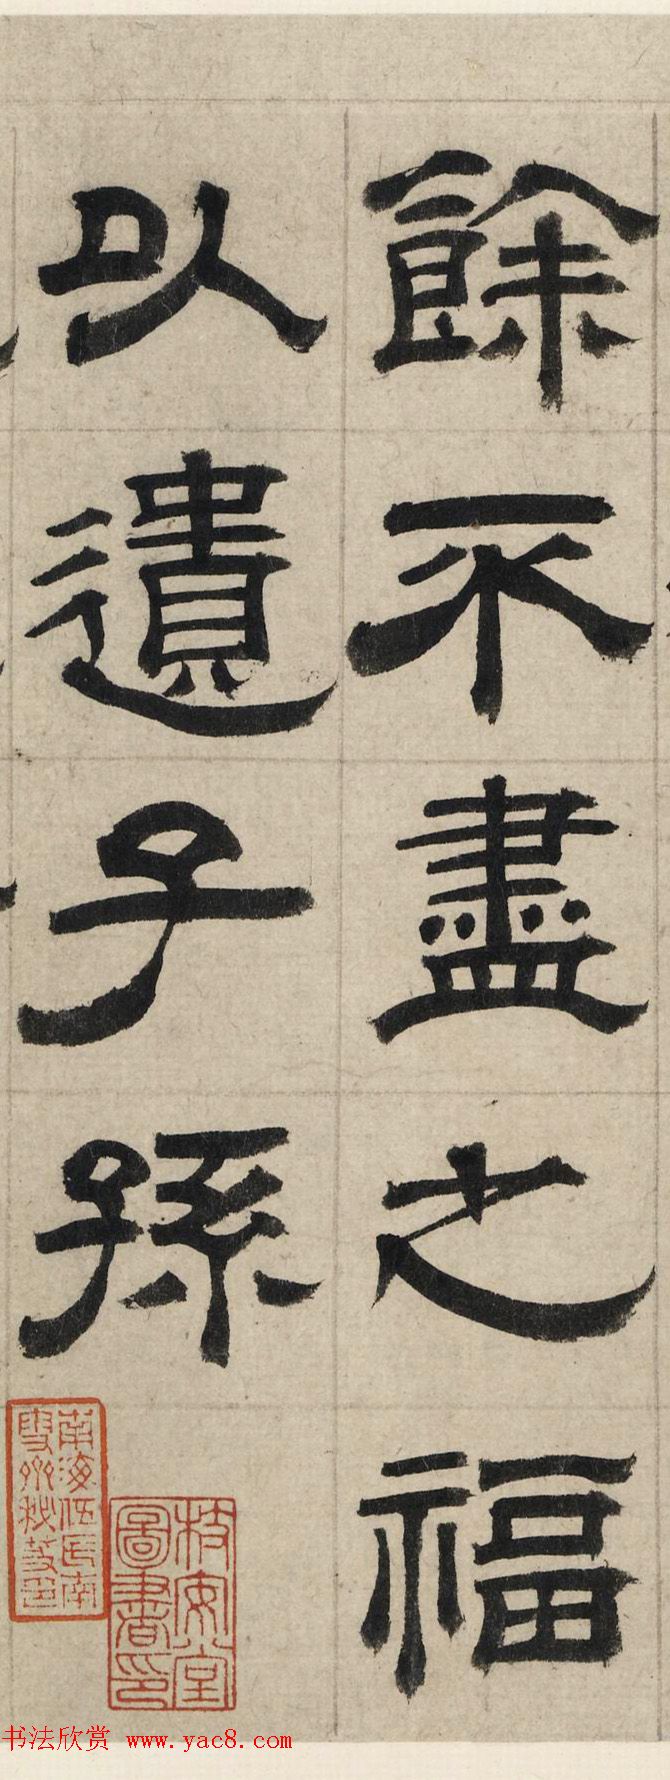 餘不盡之福
以遺子孫
南海伍氏南
雪齋秘笈印
枝安堂
圖書印
书法欣赏 www.yac8.com